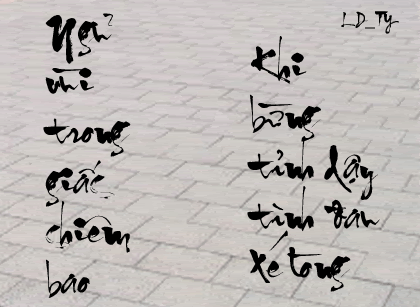 LD_Ty
Ngủ
vùi
trong
giấc
chiêm
bao
Khi
bừng
tỉnh dậy
tình đan
xé tong